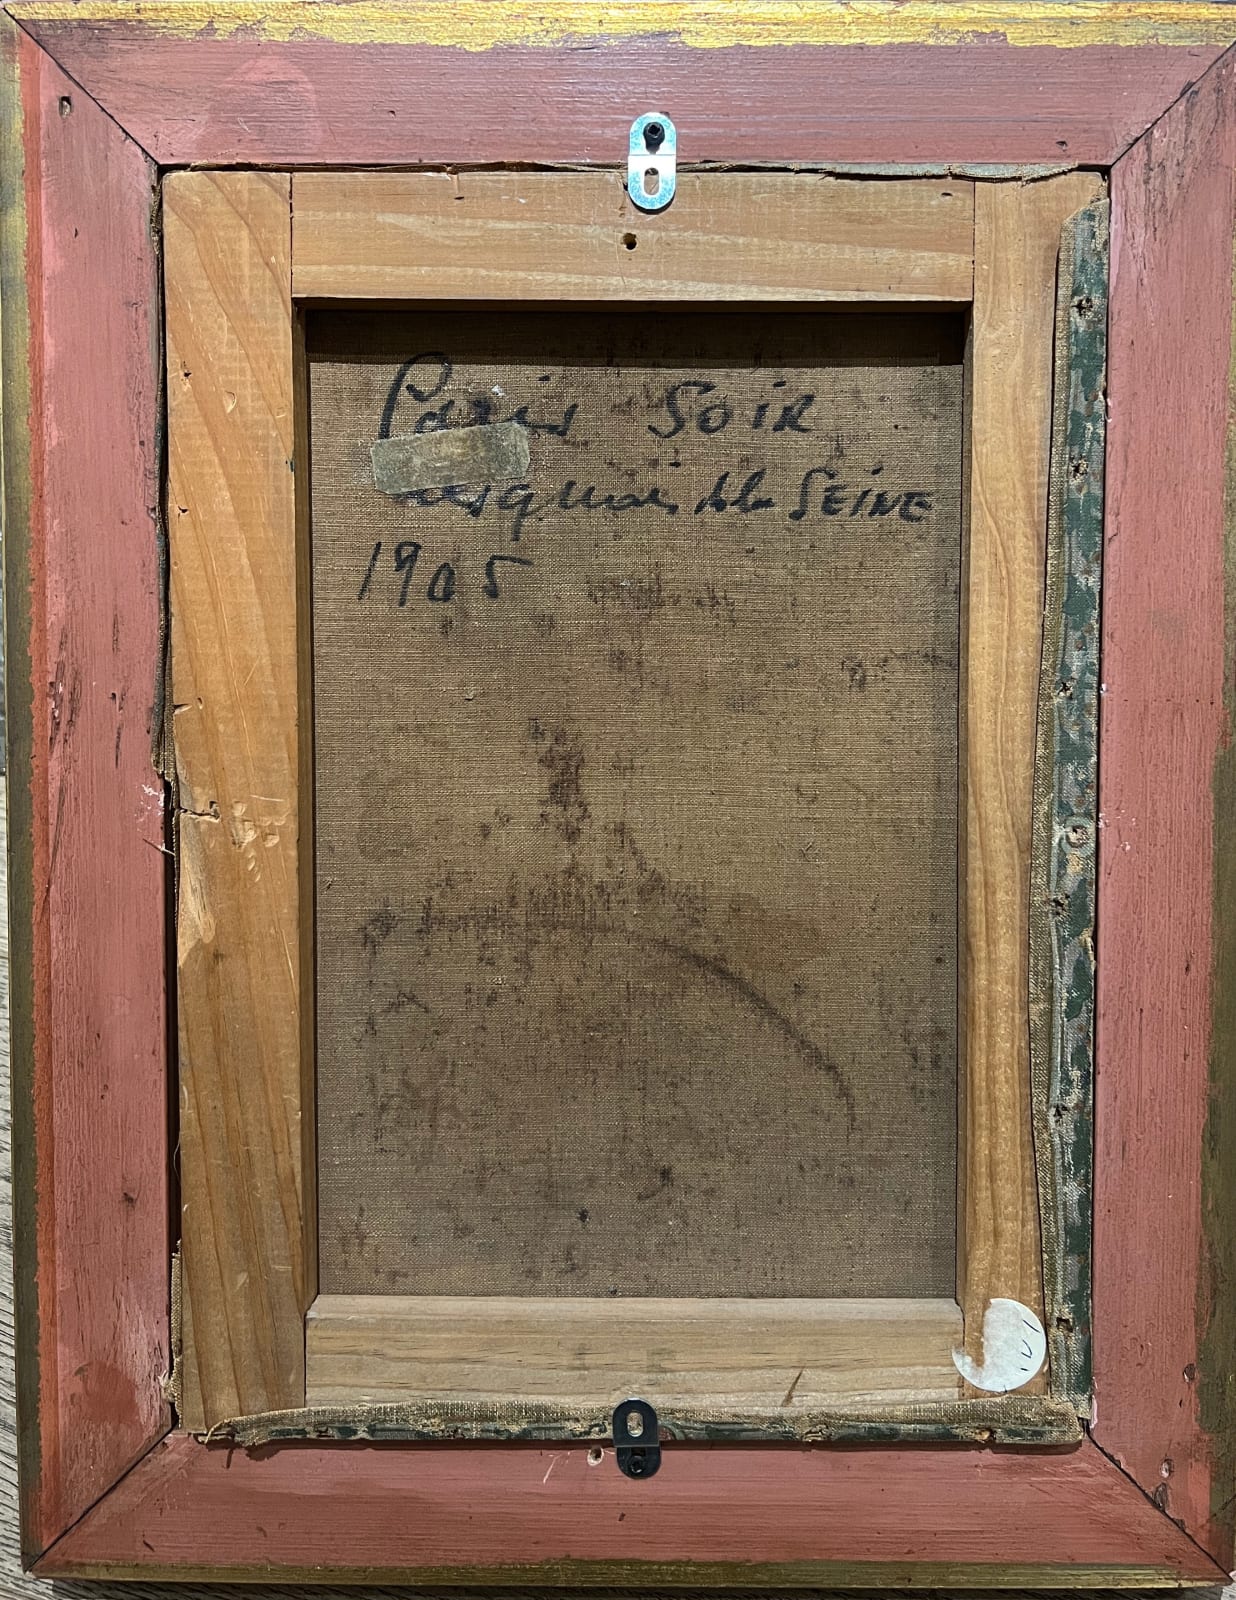 Paris SOIR
les quais de la SEINE
1905